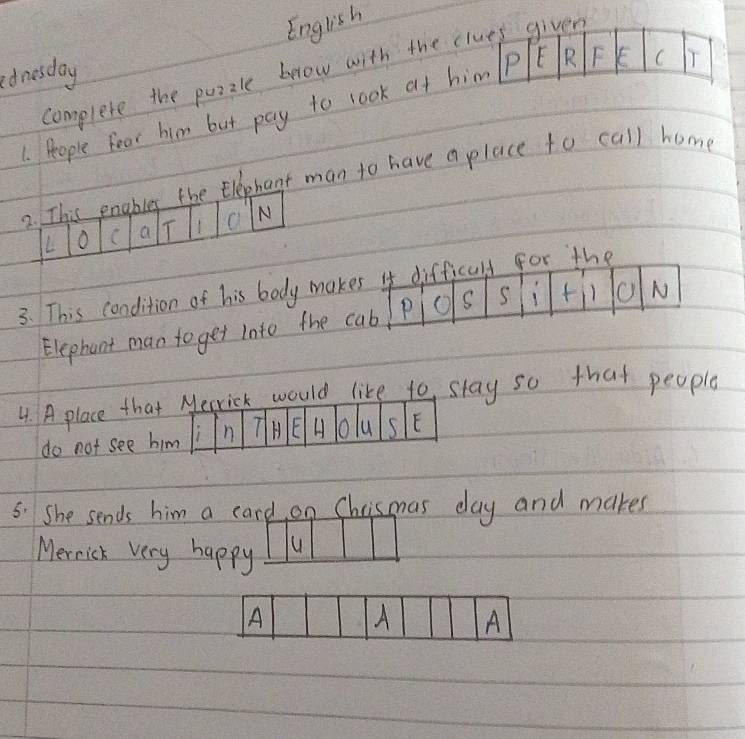 English
ednesday
Complete the puzzle below with the clues given
1. People fear him but pay to look at him PERFECT
2. This enables the Elephant man to have a place to call home
LOCaTION
3. This condition of his body makes it difficult for the
Elephant man to get into the cab. POSSitION
4. A place that Merrick would like to stay so that people
do not see him inTHEHOuSE
5. She sends him a card on Chrismas day and makes
Merrick very happy U
A A A